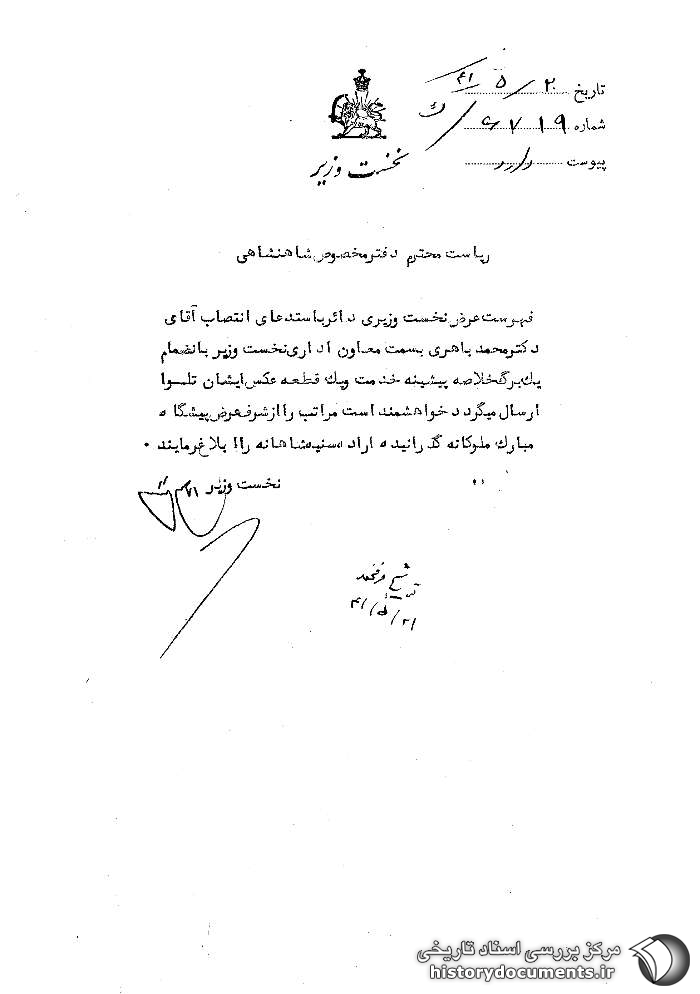 تاریخ ۲۰ / ۵ / ۴۱
شماره ۶۷۱۹ / ک
پیوست دارد
نخست وزیر
ریاست محترم دفتر مخصوص شاهنشاهی
فهرست عرض نخست وزیری دائر باستدعای انتصاب آقای
دکتر محمد باهری بسمت معاون اداری نخست وزیر بانضمام
یك برگ خلاصه پیشینه خدمت ویك قطعه عکس ایشان تلوا
ارسال میگردد خواهشمند است مراتب را از شرفعرض پیشگاه
مبارك ملوکانه گذرانیده اراده سنیه شاهانه را ابلاغ فرمایند ۰
نخست وزیر
۴۱/۵/۲۱
مرکز بررسی اسناد تاریخی
historydocuments.ir